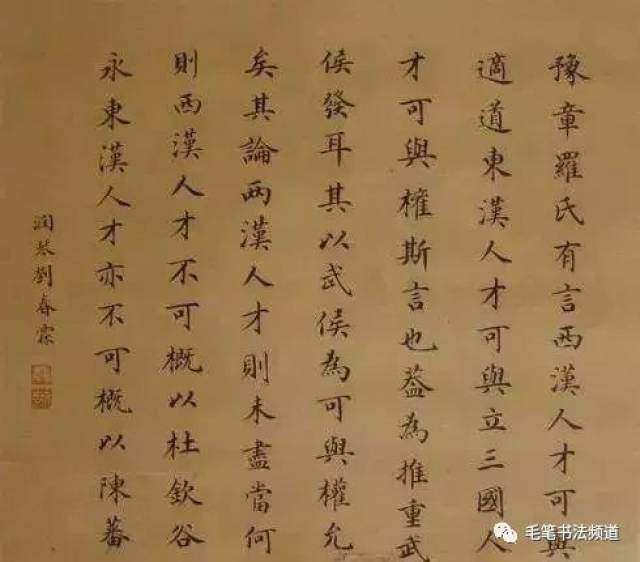 豫章羅氏有言西漢人才可與
適道東漢人才可與立三國人
才可與權斯言也葢為推重武
侯發耳其以武侯為可與權允
矣其論两漢人才則未盡當何
則西漢人才不可概以杜欽谷
永東漢人才亦不可概以陳蕃
潤琴劉春霖
毛笔书法频道